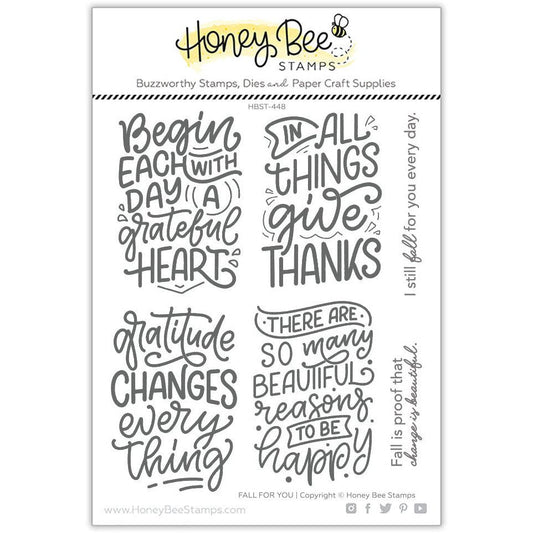 Honey Bee
STAMPS
Buzzworthy Stamps, Dies and Paper Craft Supplies
HBST-448
Begin
EACH WITH
DAY A
grateful
HEART
IN ALL
THINGS
give
THANKS
I still fall for you every day.
gratitude
CHANGES
every
thing
THERE ARE
SO many
BEAUTIFUL
reasons
TO BE
happy
Fall is proof that
change is beautiful.
FALL FOR YOU | Copyright © Honey Bee Stamps
www.HoneyBeeStamps.com